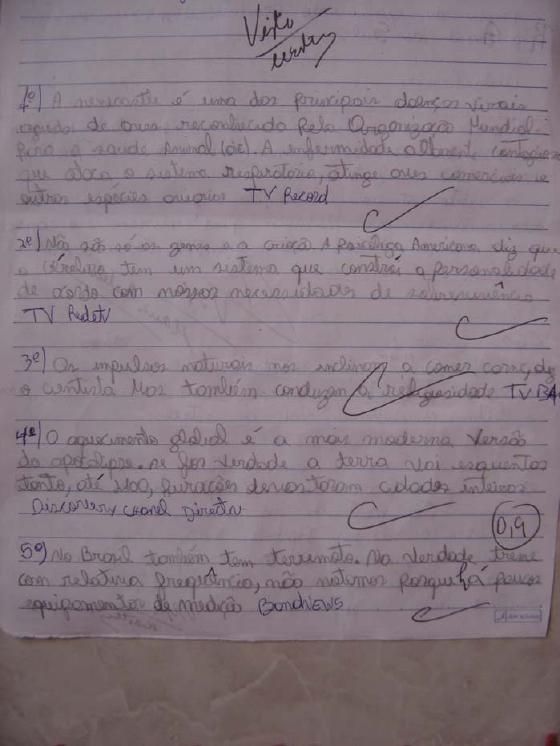 Visto
1º) A newcastle é uma das principais doenças virais
agudas de aves reconhecida pela Organização Mundial
para a saúde Animal (oie). A enfermidade altament contagiosa
que ataca o sistema respiratório, atinge aves comerciais e
outras espécies aviarias TV Record
2º) Não são só os genes e a criação A psicóloga Americana diz que
o cérebro tem um sistema que constrói a personalidade
de acordo com nossas necessidades de sobrevivência
TV Redetv
3º) Os impulsos naturais nos inclinam a comer carne, diz
o cientista Mas também conduzem a religiosidade TV BA
4º) O aquecimento global é a mais moderna versão
do apocalipse. se for verdade a terra vai esquentar
tanto, até furacões devastaram cidades inteiras
Discovery chanel Directv
0,9
5º) No Brasil também tem terremoto. Na verdade treme
com relativa frequência, não notamos porque há poucos
equipamentos de medição BandNEWS